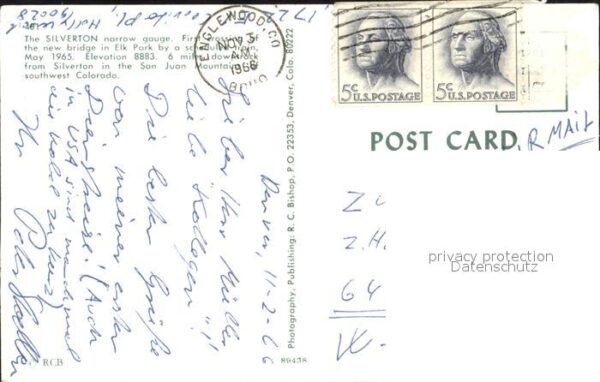 The SILVERTON narrow gauge. First crossing of
the new bridge in Elk Park by a scheduled train,
May 1965. Elevation 8883. 6 miles down track
from Silverton in the San Juan Mountains of
southwest Colorado.
ENGLEWOOD, CO
NOV 3
AM
1966
5c U.S. POSTAGE
5c U.S. POSTAGE
POST CARD
R MAIL
90028
Denver, 11-2-66
Lieber Herr Müller
liebe "Kollegen"!
Die besten Grüße
von meiner ersten
Dienstreise! (Auch
in USA sind manchmal
die Kabel zu kurz)
Ihr
Photography, Publishing: R. C. Bishop, P.O. 22353, Denver, Colo. 80222
RCB
89438
Z.H.
64
privacy protection
Datenschutz